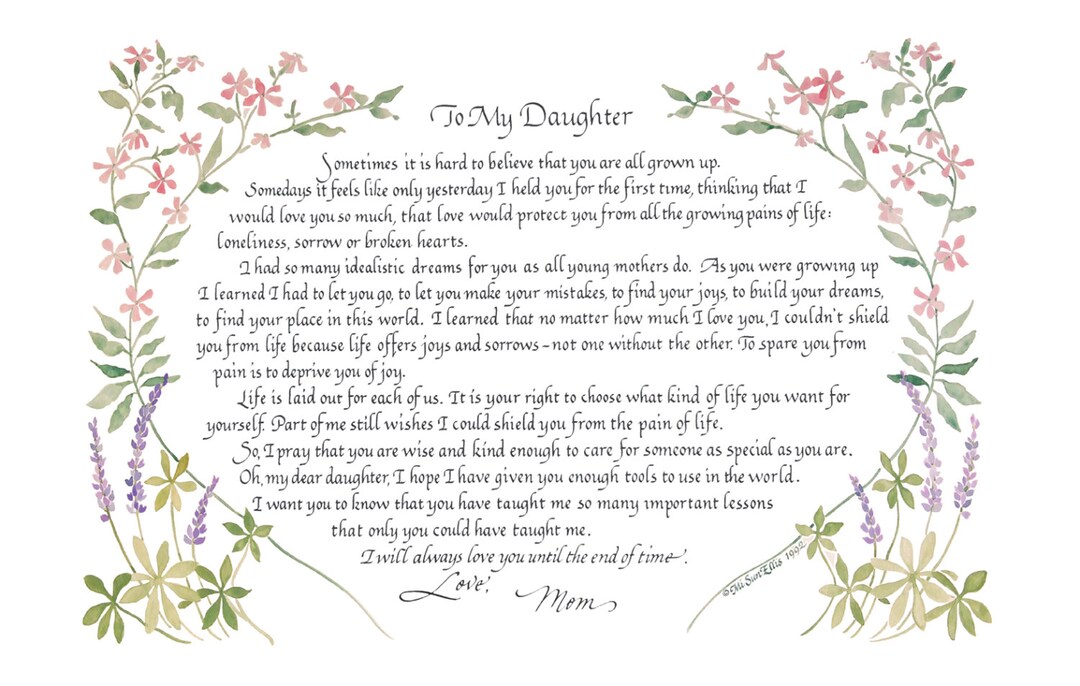 To My Daughter
Sometimes it is hard to believe that you are all grown up.
Somedays it feels like only yesterday I held you for the first time, thinking that I
would love you so much, that love would protect you from all the growing pains of life:
loneliness, sorrow or broken hearts.
I had so many idealistic dreams for you as all young mothers do. As you were growing up
I learned I had to let you go, to let you make your mistakes, to find your joys, to build your dreams,
to find your place in this world. I learned that no matter how much I love you, I couldn't shield
you from life because life offers joys and sorrows - not one without the other. To spare you from
pain is to deprive you of joy.
Life is laid out for each of us. It is your right to choose what kind of life you want for
yourself. Part of me still wishes I could shield you from the pain of life.
So, I pray that you are wise and kind enough to care for someone as special as you are.
Oh, my dear daughter, I hope I have given you enough tools to use in the world.
I want you to know that you have taught me so many important lessons
that only you could have taught me.
I will always love you until the end of time.
Love,
Mom
©Mi Sun Ellis 1992